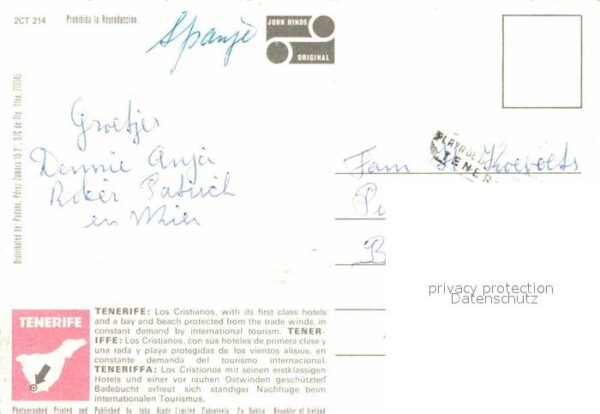 2CT 214
Prohibida la Reproduccion
Spanje
JOHN HINDE
ORIGINAL
Groetjes
Dennie Anja
en
Fam
privacy protection
Datenschutz
TENER
TENERIFE
TENERIFE: Los Cristianos, with its first class hotels
and a bay and beach protected from the trade winds, in
constant demand by international tourism. TENER-
IFFE: Los Cristianos, con sus hoteles de primera clase y
una rada y playa protegidas de los vientos alisios, en
constante demanda del tourismo internacional.
TENERIFFA: Los Cristianos mit seinen erstklassigen
Hotels und einer vor rauhen Ostwinden geschützter
Badebucht erfreut sich ständiger Nachfrage beim
internationalen Tourismus.
Photographed Printed and Published by John Hinde Limited Dublin Republic of Ireland
Distributed by